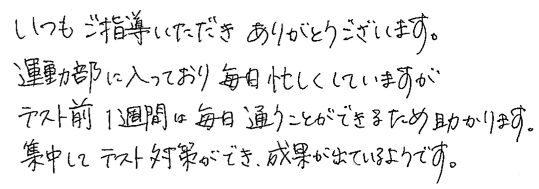 いつもご指導いただきありがとうございます。
運動部に入っており毎日忙しくしていますが
テスト前1週間は毎日通うことができるため助かります。
集中してテスト対策ができ、成果が出ているようです。